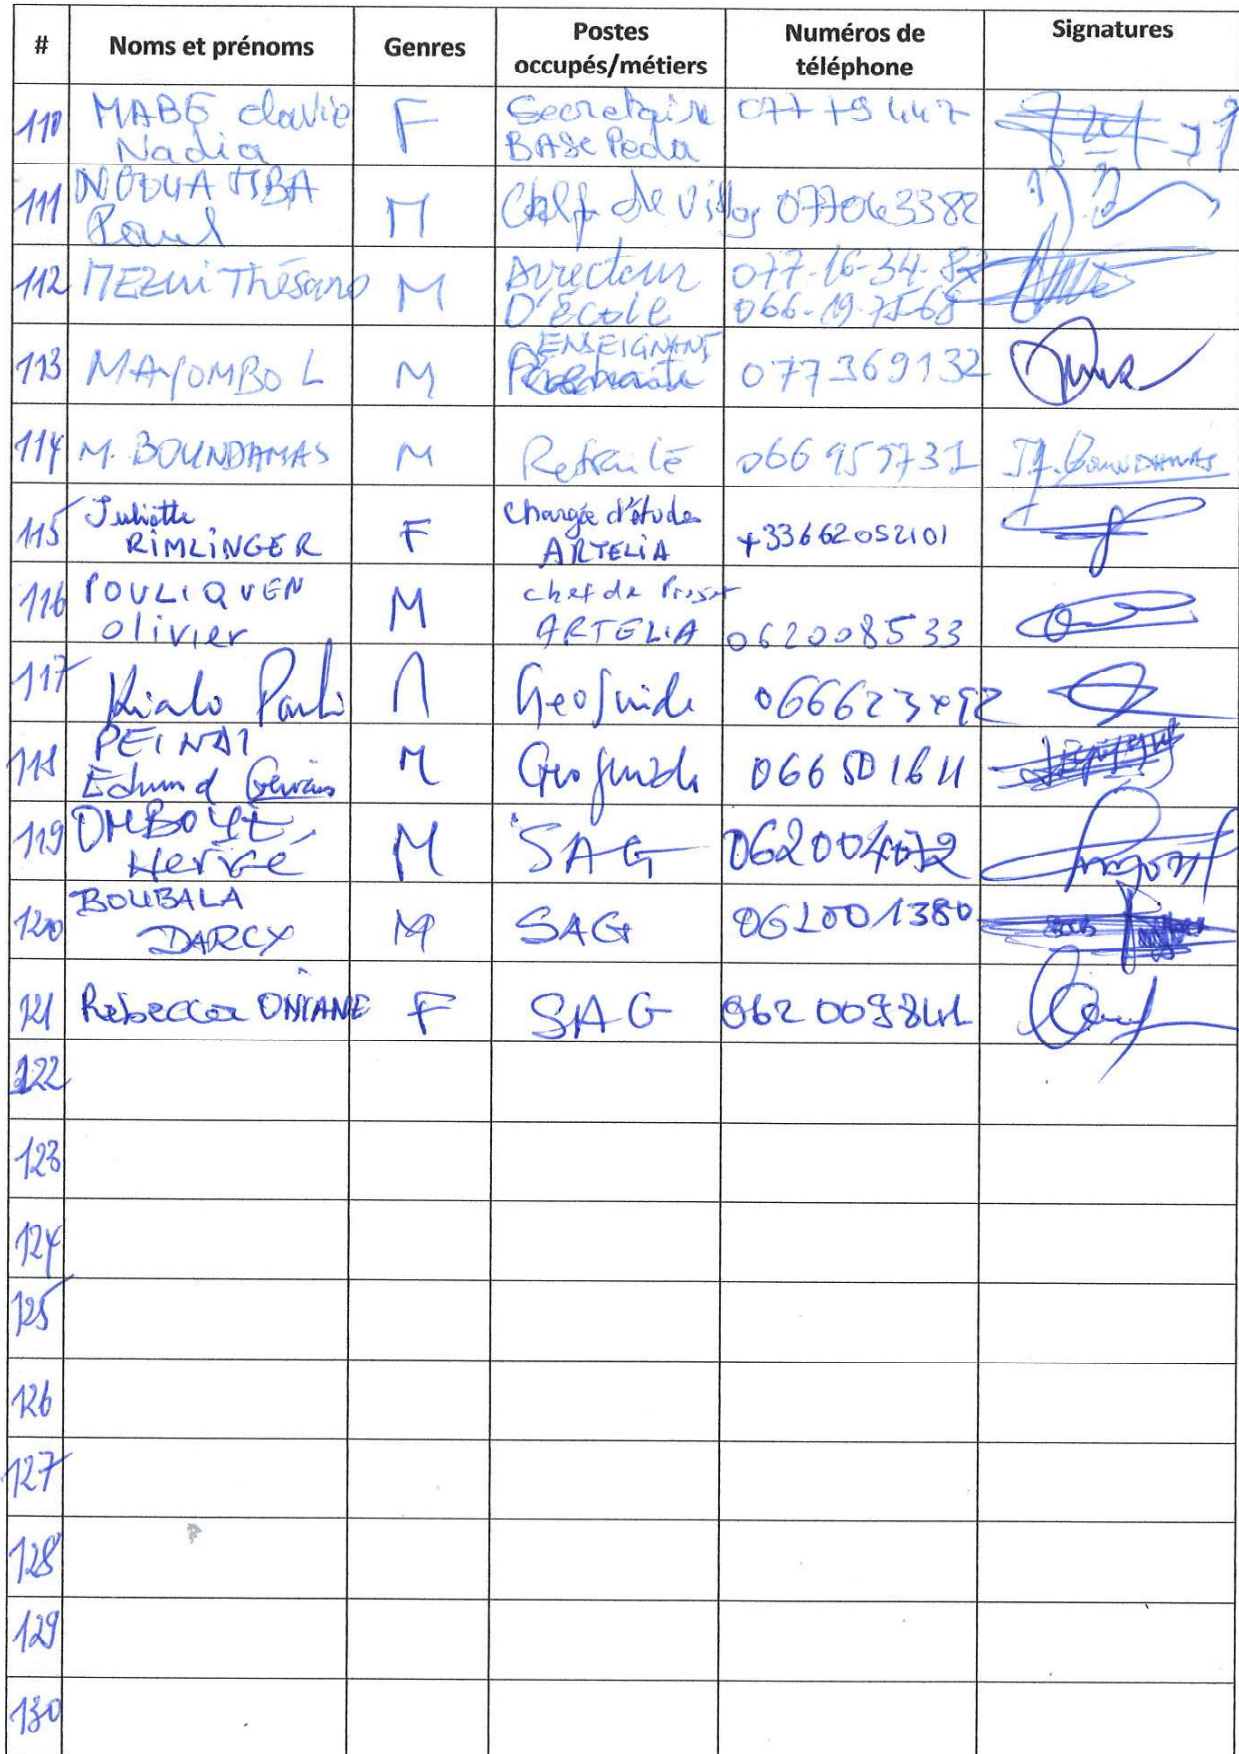 # Noms et prénoms Genres Postes occupés/métiers Numéros de téléphone Signatures
110 MABE Clavie Nadia F Secretaire BASE Peda
111 Paul M Chef de village 077063382
112 MEZUI M Directeur D'École 077-16-34-82 066-19-75-68
113 MAYOMBO L M ENSEIGNANT 077369132
114 M. BOUNDAMAS M Retraité
115 Juliette RIMLINGER F Chargée d'étude ARTELIA +33662052101
116 POULIQUEN Olivier M chef de Projet ARTELIA 062008533
117 Kialo M Geoguide
118 PEINDI Edmund Gervais M Geoguide 066501611
119 OMBOYE Hervé M SAG 062004072
120 BOUBALA DARCY M SAG 062001380
121 Rebecca ONIANE F SAG 062009841
122
123
124
125
126
127
128
129
130